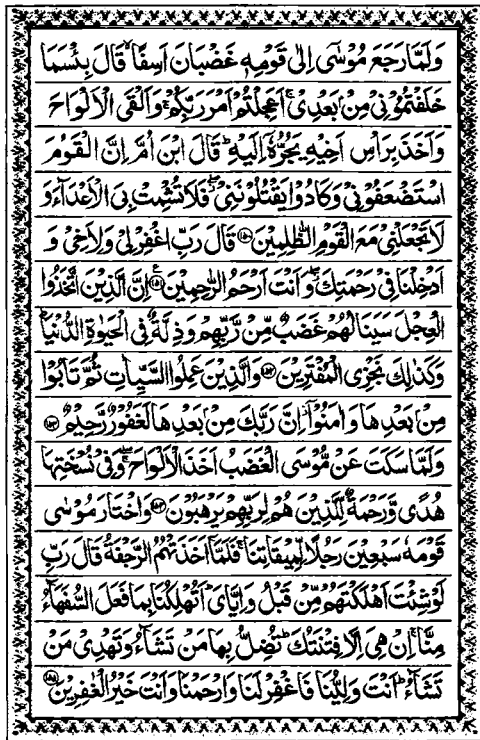 وَلَمَّا رَجَعَ مُوْسٰۤى اِلٰى قَوْمِهٖ غَضْبَانَ اَسِفًا ۙ قَالَ بِئْسَمَا
خَلَفْتُمُوْنِيْ مِنْۢ بَعْدِيْ ۚ اَعَجِلْتُمْ اَمْرَ رَبِّكُمْ ۚ وَاَلْقَى الْاَلْوَاحَ
وَاَخَذَ بِرَاْسِ اَخِيْهِ يَجُرُّهٗۤ اِلَيْهِ ؕ قَالَ ابْنَ اُمَّ اِنَّ الْقَوْمَ
اسْتَضْعَفُوْنِيْ وَكَادُوْا يَقْتُلُوْنَنِيْ ۖ فَلَا تُشْمِتْ بِيَ الْاَعْدَآءَ وَ
لَا تَجْعَلْنِيْ مَعَ الْقَوْمِ الظّٰلِمِيْنَ ﴿۱۵۰﴾ قَالَ رَبِّ اغْفِرْ لِيْ وَلِاَخِيْ وَ
اَدْخِلْنَا فِيْ رَحْمَتِكَ ۖ وَاَنْتَ اَرْحَمُ الرّٰحِمِيْنَ ﴿۱۵۱﴾ اِنَّ الَّذِيْنَ اتَّخَذُوا
الْعِجْلَ سَيَنَالُهُمْ غَضَبٌ مِّنْ رَّبِّهِمْ وَذِلَّةٌ فِي الْحَيٰوةِ الدُّنْيَا ؕ
وَكَذٰلِكَ نَجْزِي الْمُفْتَرِيْنَ ﴿۱۵۲﴾ وَالَّذِيْنَ عَمِلُوا السَّيِّاٰتِ ثُمَّ تَابُوْا
مِنْۢ بَعْدِهَا وَاٰمَنُوْۤا ۫ اِنَّ رَبَّكَ مِنْۢ بَعْدِهَا لَغَفُوْرٌ رَّحِيْمٌ ﴿۱۵۳﴾
وَلَمَّا سَكَتَ عَنْ مُّوْسَى الْغَضَبُ اَخَذَ الْاَلْوَاحَ ۖ وَفِيْ نُسْخَتِهَا
هُدًى وَّرَحْمَةٌ لِّلَّذِيْنَ هُمْ لِرَبِّهِمْ يَرْهَبُوْنَ ﴿۱۵۴﴾ وَاخْتَارَ مُوْسٰى
قَوْمَهٗ سَبْعِيْنَ رَجُلًا لِّمِيْقَاتِنَا ۚ فَلَمَّاۤ اَخَذَتْهُمُ الرَّجْفَةُ قَالَ رَبِّ
لَوْ شِئْتَ اَهْلَكْتَهُمْ مِّنْ قَبْلُ وَاِيَّايَ ؕ اَتُهْلِكُنَا بِمَا فَعَلَ السُّفَهَآءُ
مِنَّا ۚ اِنْ هِيَ اِلَّا فِتْنَتُكَ ؕ تُضِلُّ بِهَا مَنْ تَشَآءُ وَتَهْدِيْ مَنْ
تَشَآءُ ؕ اَنْتَ وَلِيُّنَا فَاغْفِرْ لَنَا وَارْحَمْنَا وَاَنْتَ خَيْرُ الْغٰفِرِيْنَ ﴿۱۵۵﴾